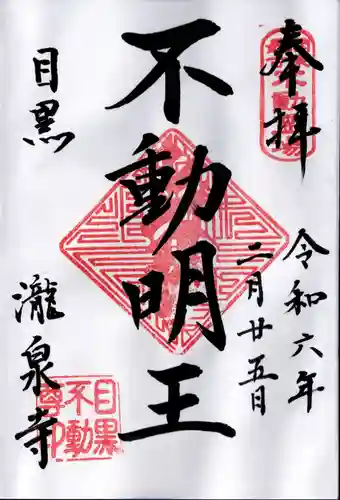 奉拝
令和六年
二月廿五日
不動明王
目黒
瀧泉寺
目黒
不動